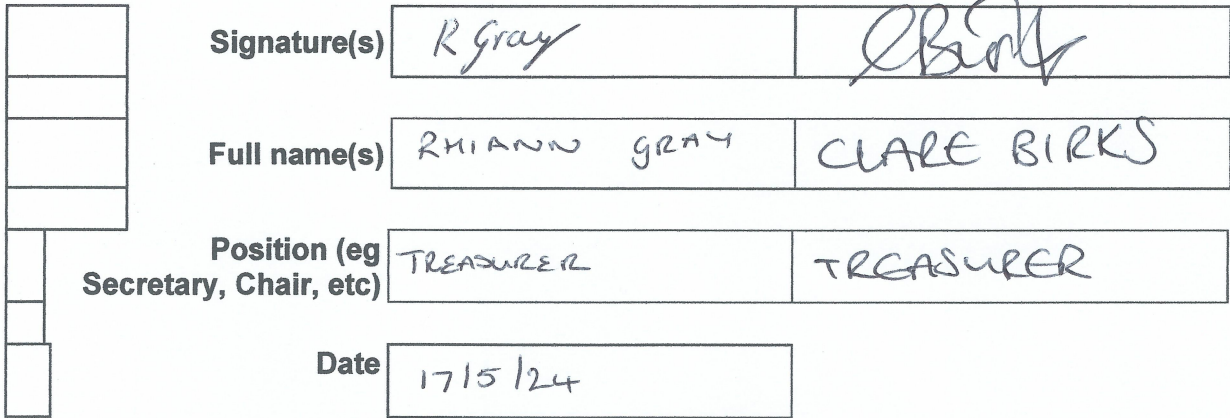 Signature(s) R Gray CBirks
Full name(s) RHIANN GRAY CLARE BIRKS
Position (eg
Secretary, Chair, etc) TREASURER TREASURER
Date 17/5/24